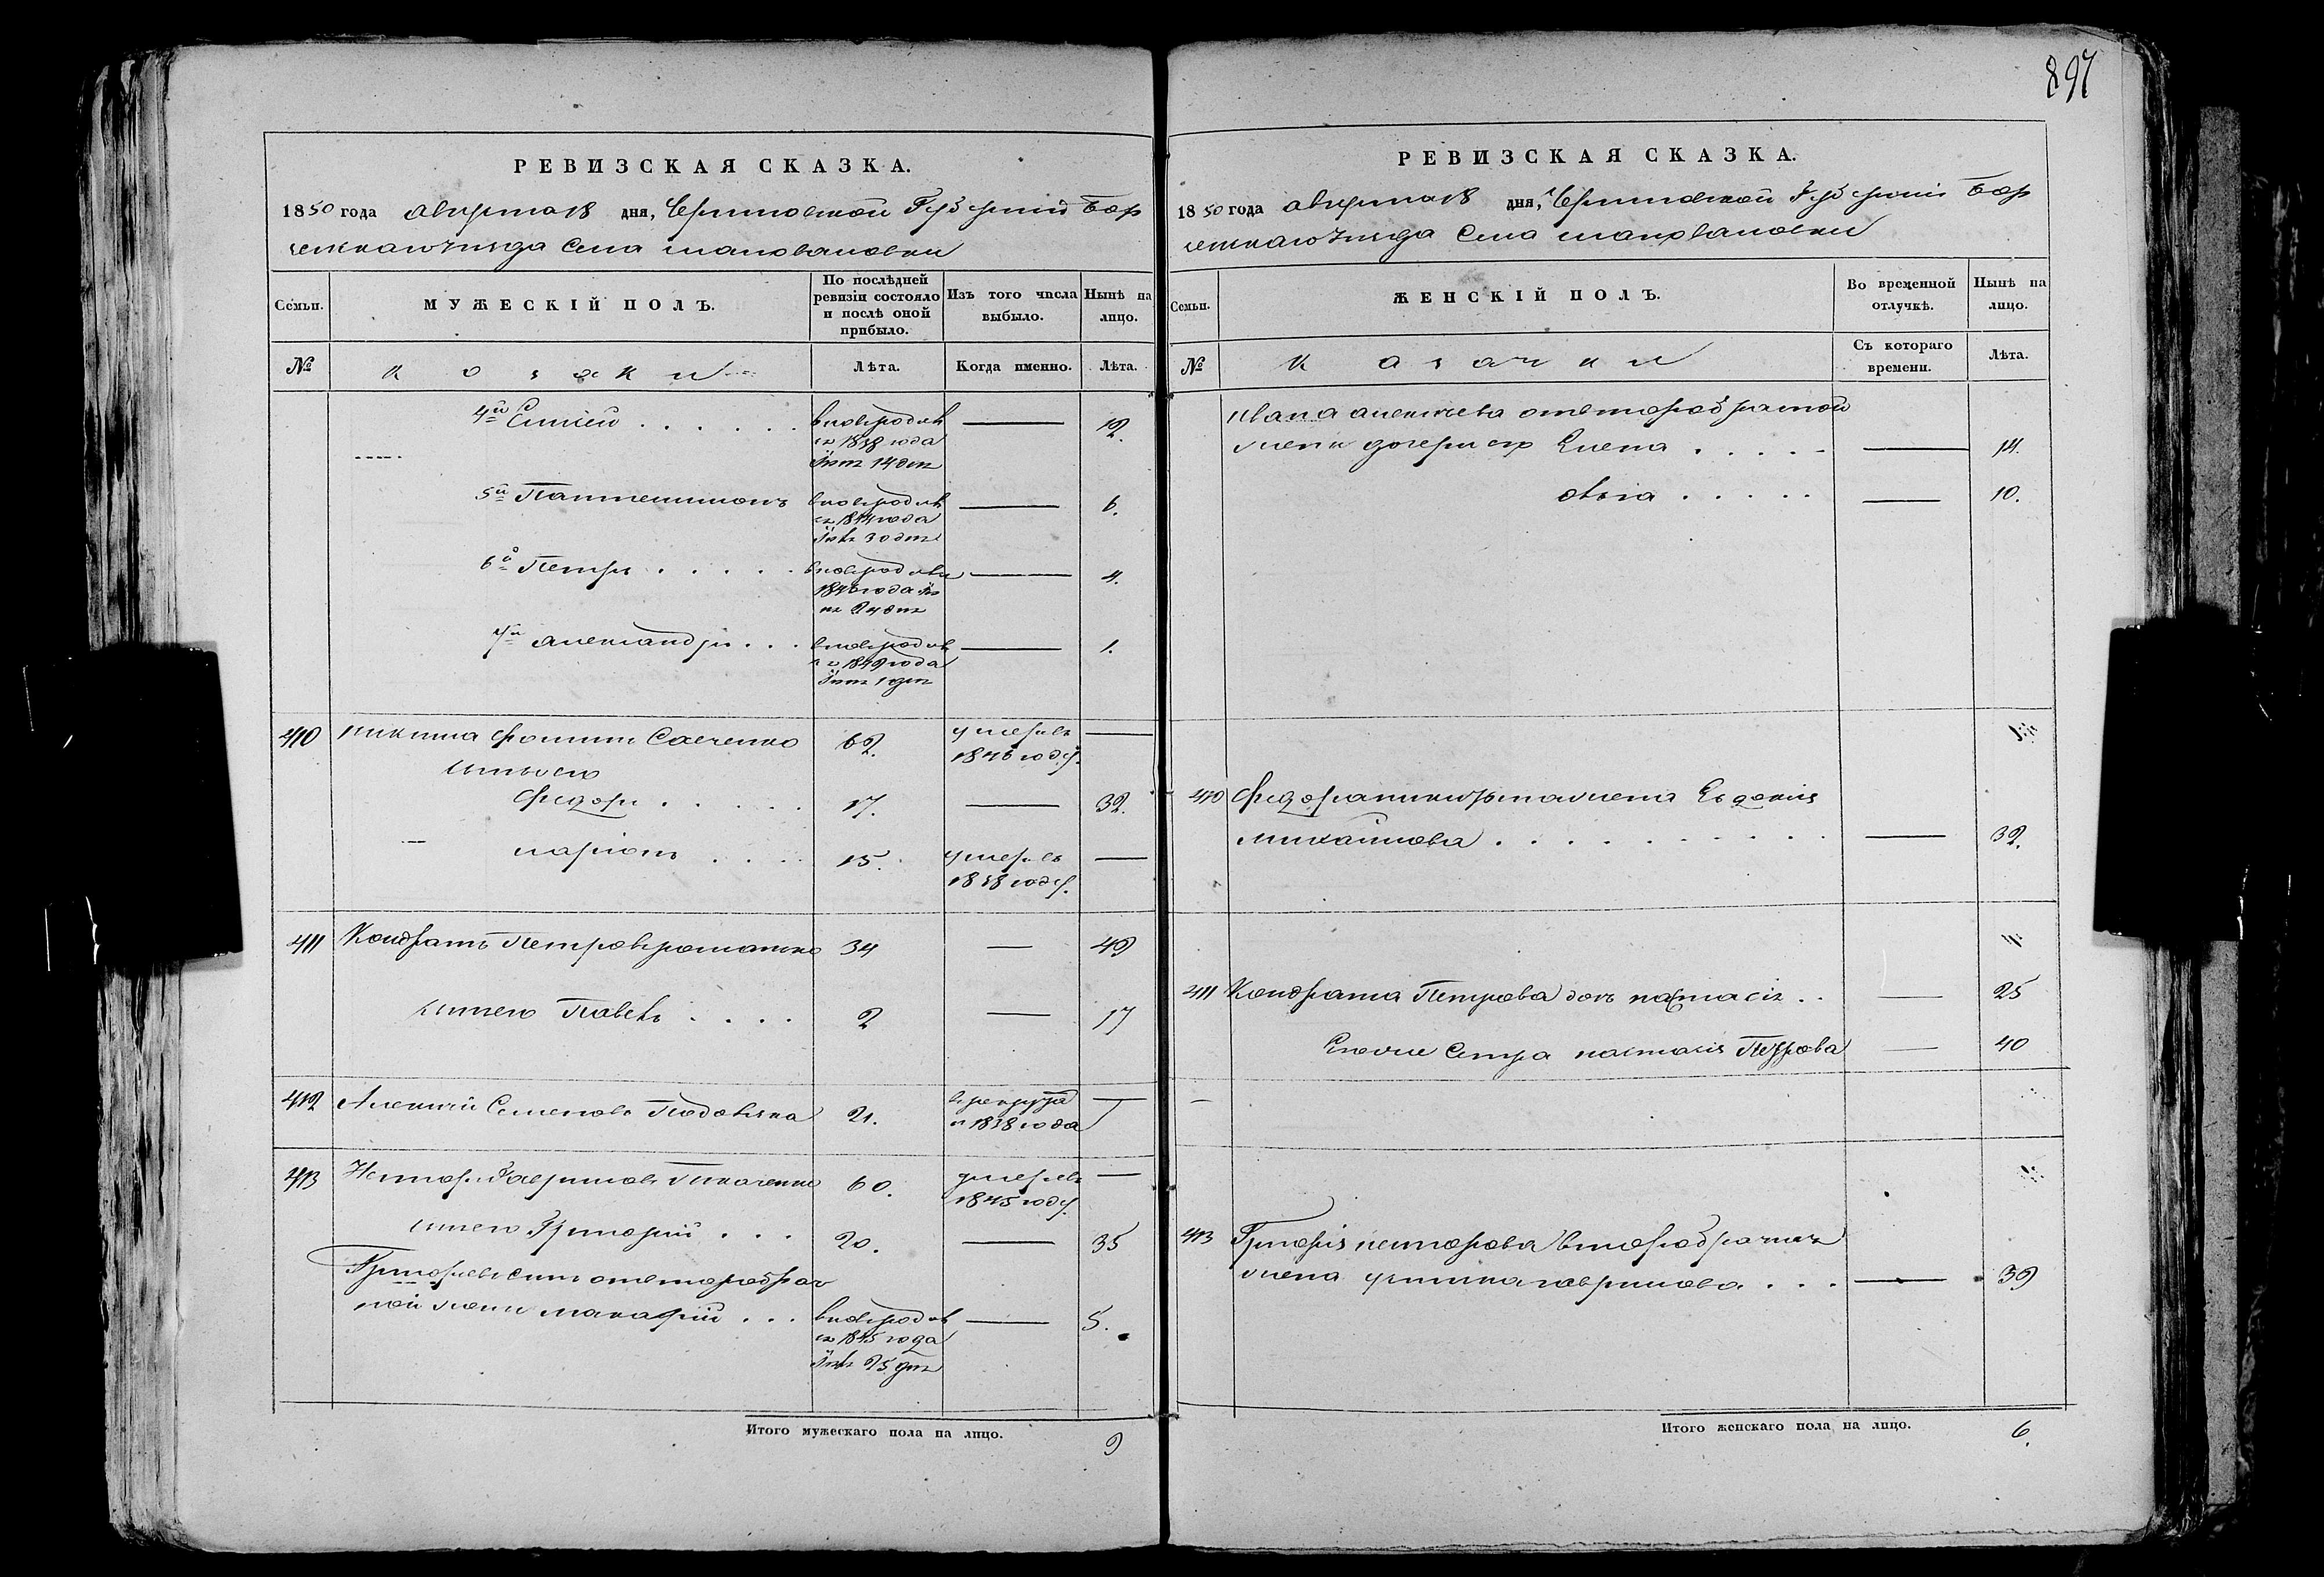 897
РЕВИЗСКАЯ СКАЗКА.
1850 года августа 18 дня, Черниговской Губерний Бор
зенскаго уезда Села шаповаловки
Семьи.
МУЖЕСКІЙ ПОЛЪ.
По послѣдней ревизіи состояло и послѣ оной прибыло.
Изъ того числа выбыло.
Нынѣ на лицо.
№
козаки
Лѣта.
Когда именно.
Лѣта.
4й . . . . . .
вновьрожде
1838 года
14 дня
12.
5й Пантелимонъ
вновьрожде
1844 года
30 дня
6.
6й Петръ . . . . .
вновьрожде
1846 года
24 дня
4.
7й александръ . . .
вновьрожде
1849 года
1 дня
1.
410 никита фоминъ Савченко 62. умеръ въ
1846 году.
сынъ его
федоръ . . . . . 17. 32.
ларіонъ . . . . 15. умеръ въ
1838 году.
411 Кондратъ Петровъ романенко 34 — 49
сынъ его Павелъ . . . . 2 — 17
412 Алексѣй Семеновъ 21. в рекрута
1838 года
413 Несторъ Гавриловъ 60. умеръ въ
1845 году.
сынъ его Григорій . . . 20. 35
Григорьевъ сынъ отвторобрач
ной жены макарій . . . вновьрожде
1845 года
25 дня
5.
Итого мужескаго пола на лицо. 9
РЕВИЗСКАЯ СКАЗКА.
1850 года августа 18 дня, Черниговской Губерніи Бор
зенскаго уезда Села шаповаловки
Семьи.
ЖЕНСКІЙ ПОЛЪ.
Во временной отлучкѣ.
Нынѣ на лицо.
№
казачки
Съ котораго времени.
Лѣта.
ивана алексѣева отвторобрачной
жены дочери его Елена . . . . . — 14.
. . . . . — 10.
410 федора никитина жена Евдокія
михайлова . . . . . . . . . — 32.
411 Кондрата Петрова дочь настасія . . — 25
Еговже Сестра настасія Петрова — 40
413 Григорія несторова второбрачная
жена устина гаврилова . . . — 39
Итого женскаго пола на лицо. 6.